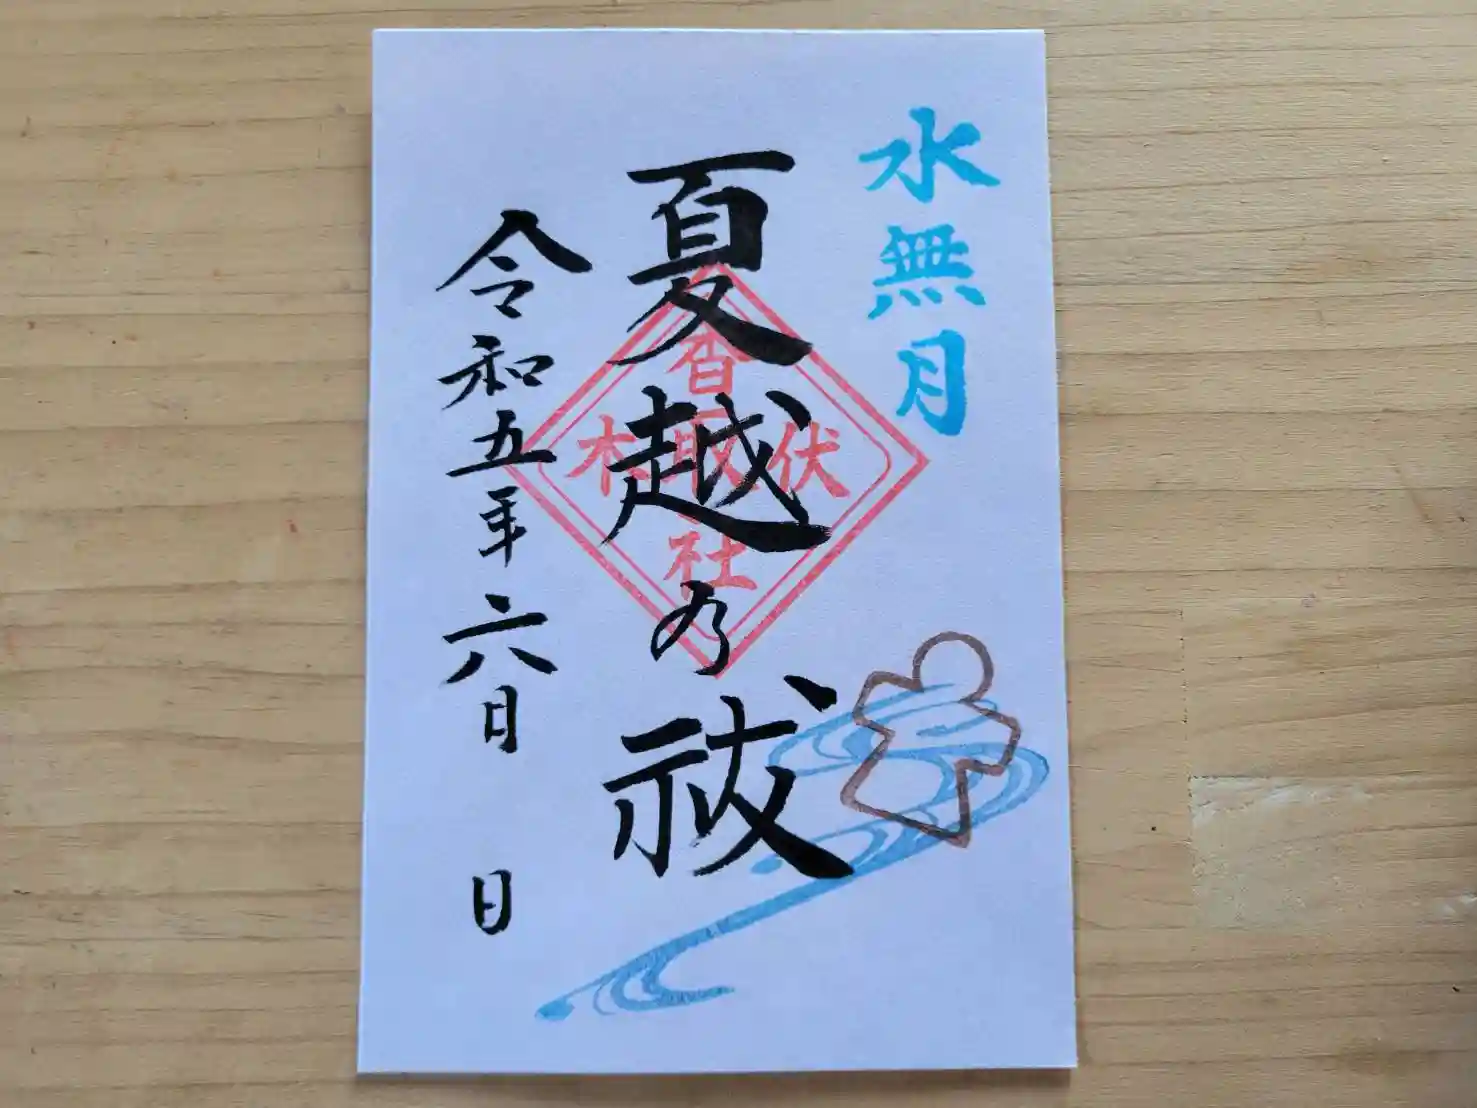 水無月
夏越乃祓
令和五年六日 日
伏木
香取社